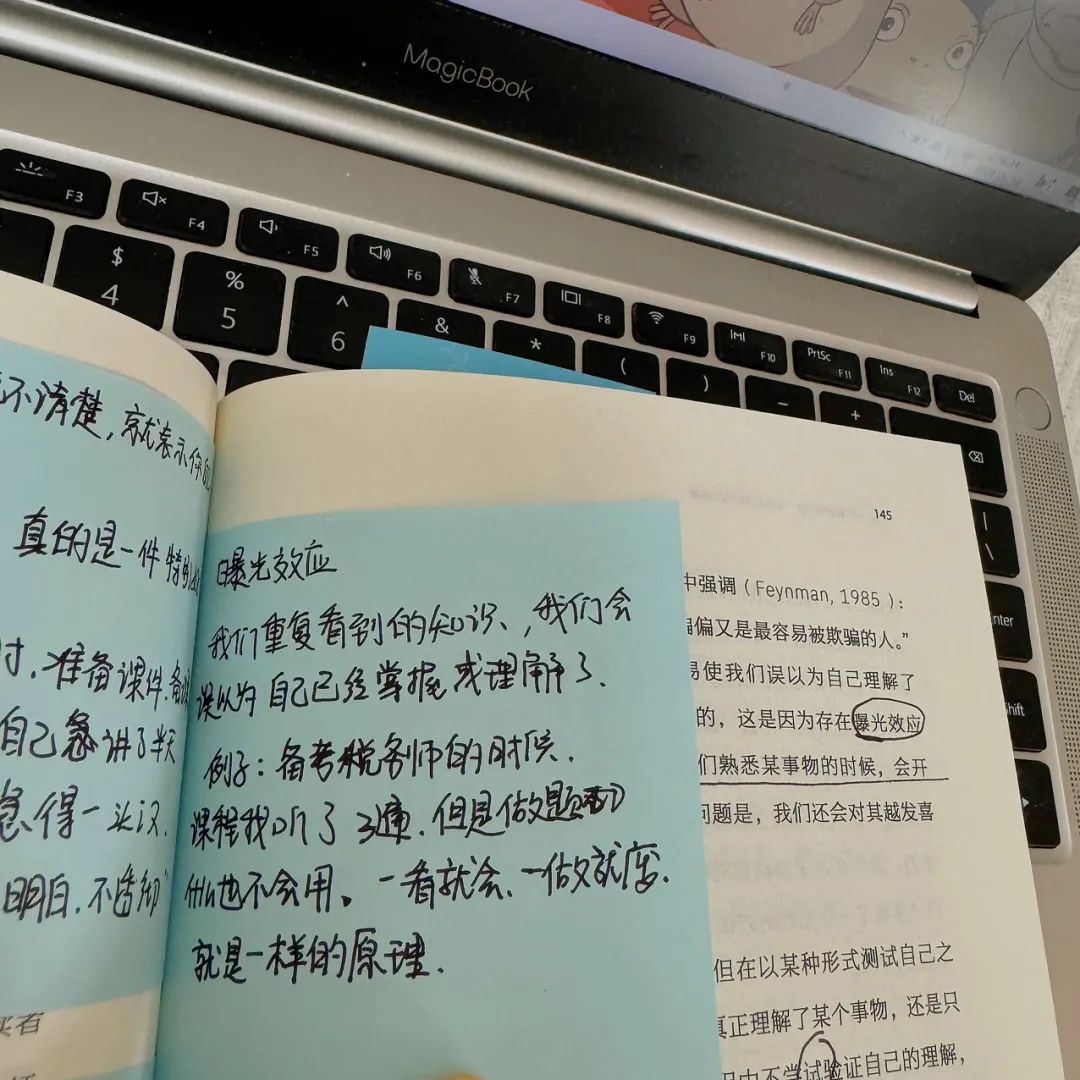 MagicBook
F3
F4
F5
F6
F7
F8
F9
F10
PrtSc
F11
Ins
F12
Del
$
4
%
5
^
6
&
*
(
)
_
+
|
\
nter
hift
不清楚，就表示你
真的是一件特别
时．准备课件．备
自己急．讲了半天
急得一头汉．
明白．不透彻”
曝光效应
我们重复看到的知识、，我们会
误以为自己已经掌握或理解了．
例子：备考税务师的时候．
课程我听了3遍．但是做题时
什么也不会用。一看就会、一做就废．
就是一样的原理．
145
中强调（Feynman, 1985）：
偏偏又是最容易被欺骗的人。”
易使我们误以为自己理解了
的，这是因为存在曝光效应
们熟悉某事物的时候，会开
问题是，我们还会对其越发喜
但在以某种形式测试自己之
真正理解了某个事物，还是只
中不尝试验证自己的理解，